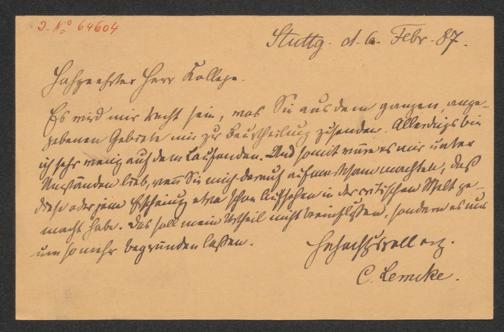 J. No 64604
Stuttg. d. 6. Febr. 87.
Hochgeehrter Herr Kollege.
Es wird mir recht sein, was Sie aus dem ganzen, ange-
gebenen Gebiete mir zur Beurtheilung zusenden. Allerdings bin
ich sehr wenig auf dem Laufenden. Und somit wäre es mir unter
Umständen lieb, wenn Sie mich darauf aufmerksam machten, daß
diese oder jene Erscheinung etwa schon Aufsehen in der kritischen Welt ge-
macht habe. Das soll mein Urtheil nicht beeinflussen, sondern es nur
um so mehr begründen lassen.
Hochachtungsvoll erg.
C. Lemcke.